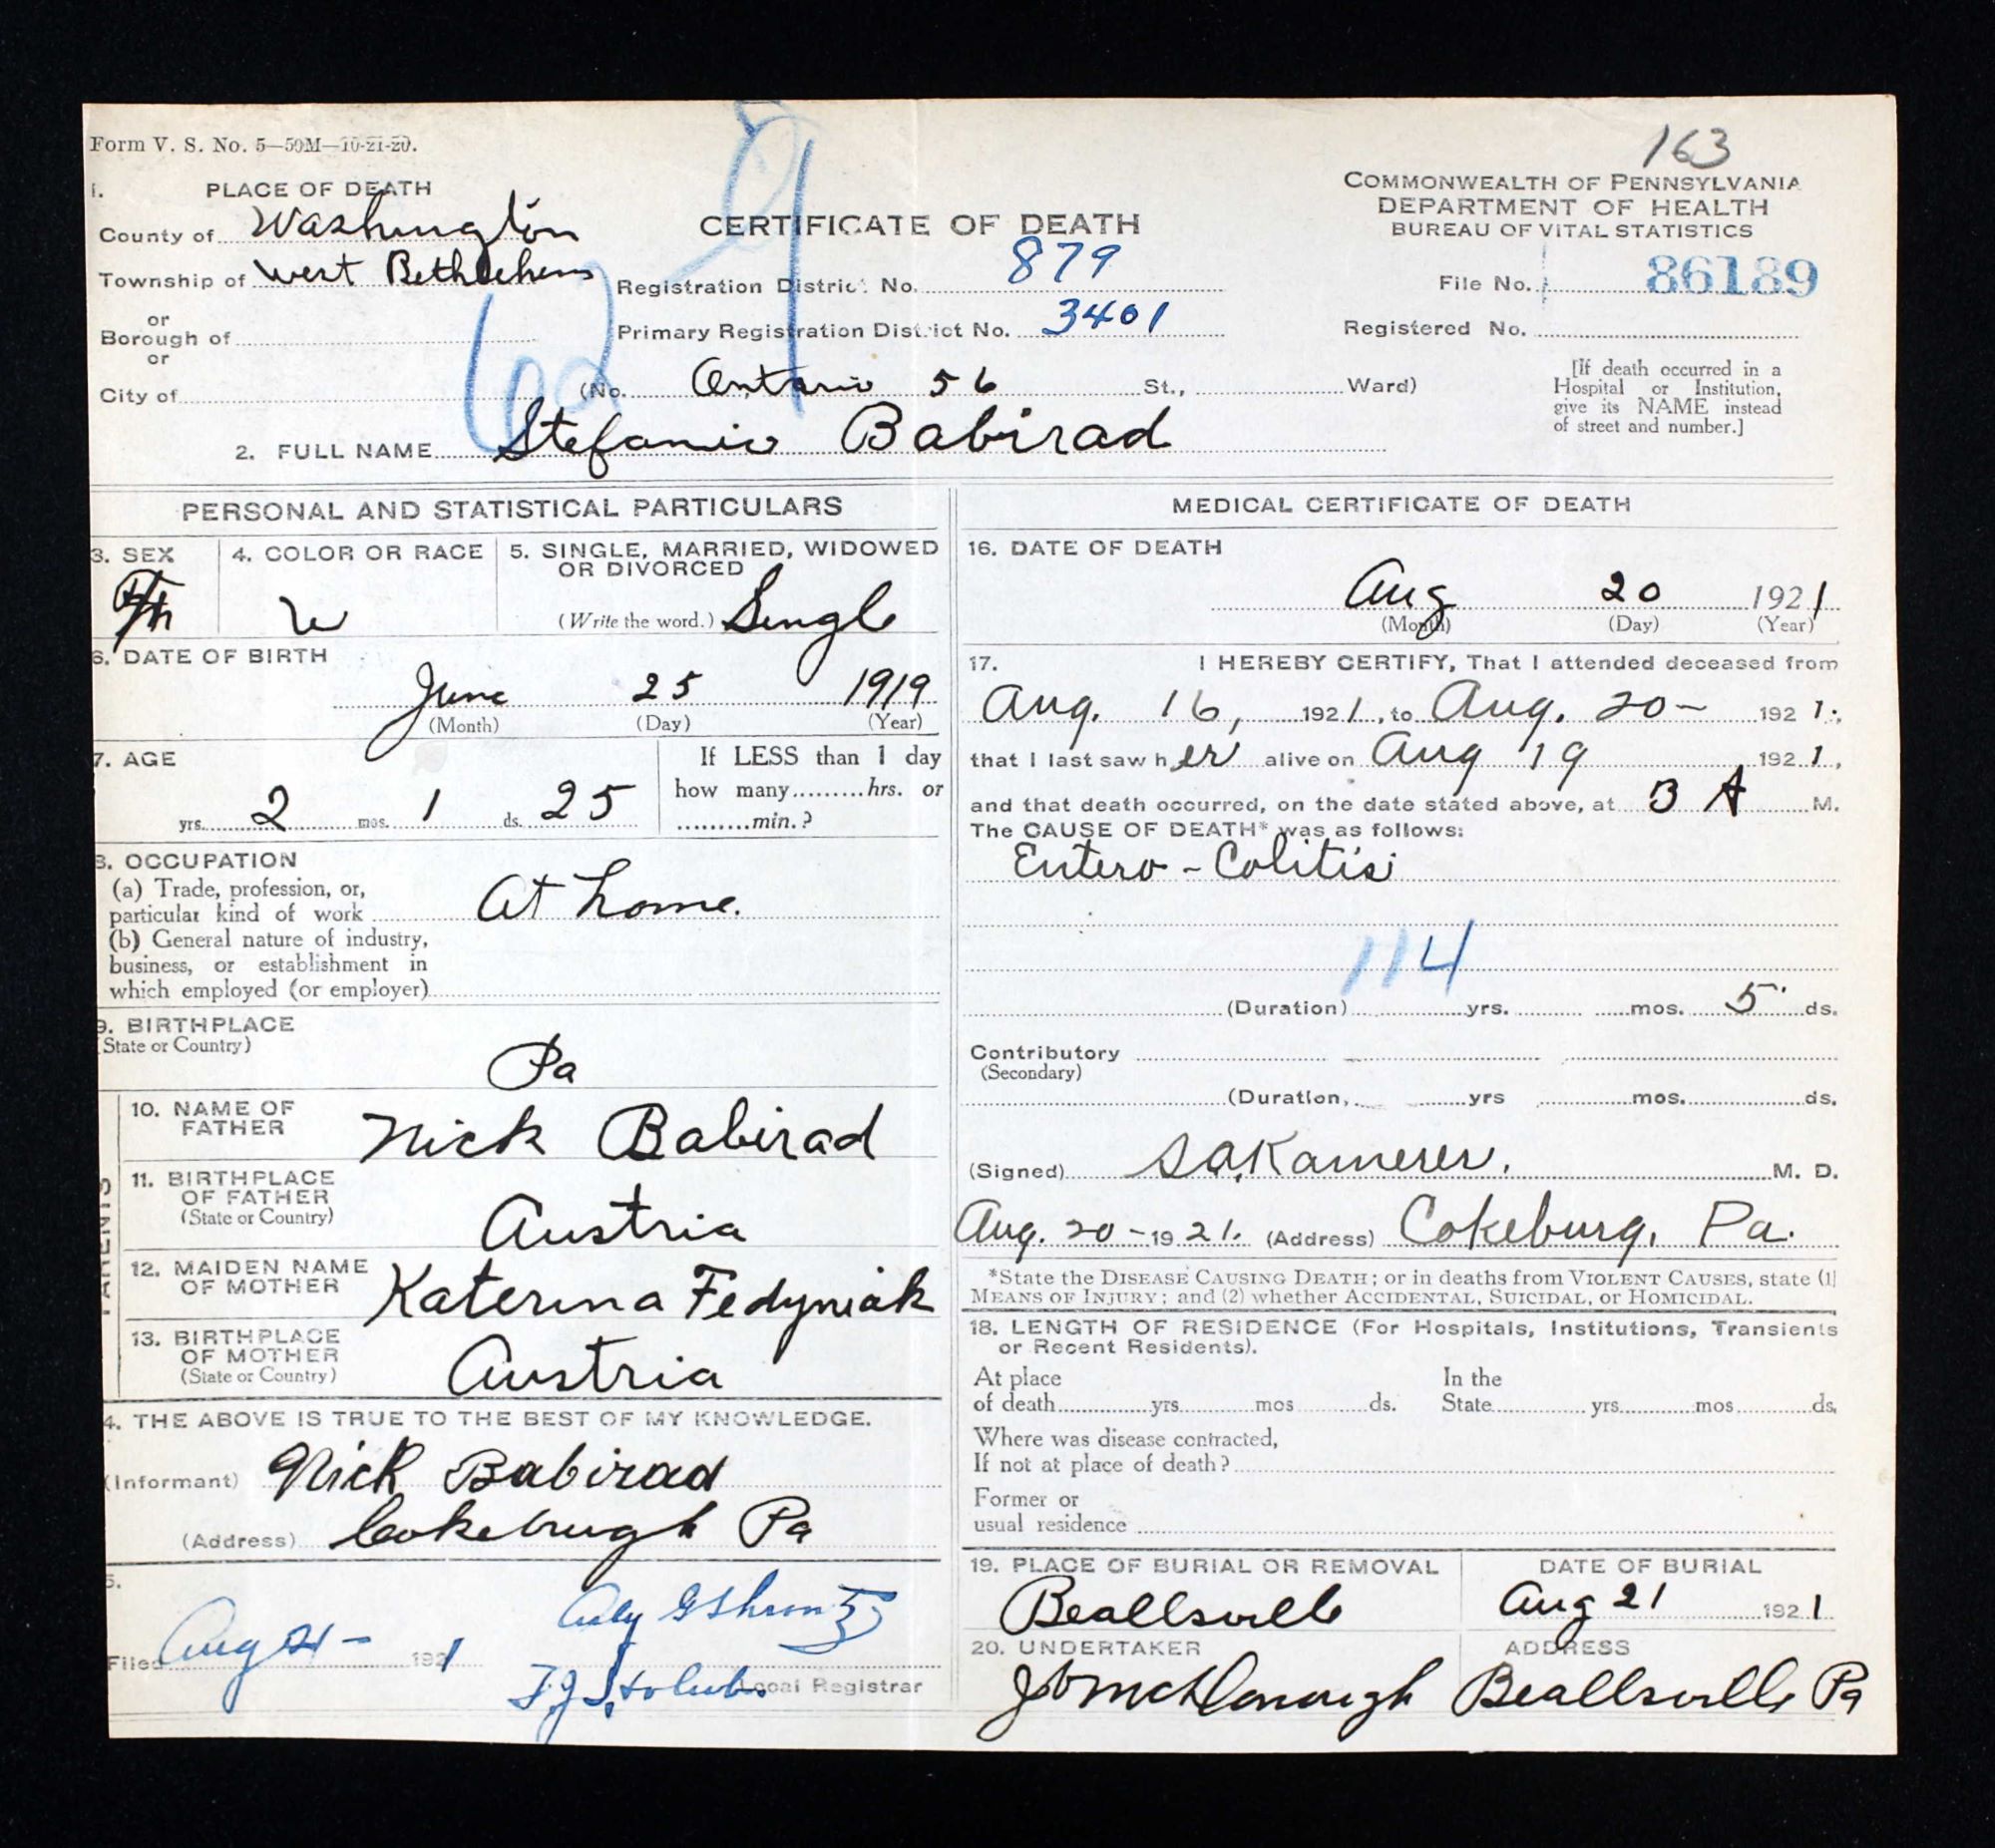 163
Form V. S. No. 5—50M—10-21-20.
COMMONWEALTH OF PENNSYLVANIA
DEPARTMENT OF HEALTH
BUREAU OF VITAL STATISTICS
1. PLACE OF DEATH
County of Washington
CERTIFICATE OF DEATH
Township of West Bethlehem
Registration District No. 879
File No. 86189
or
Borough of
Primary Registration District No. 3401
Registered No.
or
City of
(No. Ontario 56 St., Ward)
[If death occurred in a
Hospital or Institution,
give its NAME instead
of street and number.]
2. FULL NAME Stefanie Babirad
PERSONAL AND STATISTICAL PARTICULARS
3. SEX
4. COLOR OR RACE
W
5. SINGLE, MARRIED, WIDOWED
OR DIVORCED
(Write the word.) Single
6. DATE OF BIRTH
June 25 1919
(Month) (Day) (Year)
7. AGE
yrs. 2 mos. 1 ds. 25
If LESS than 1 day
how many.........hrs. or
.........min.?
8. OCCUPATION
(a) Trade, profession, or,
particular kind of work At home.
(b) General nature of industry,
business, or establishment in
which employed (or employer)
9. BIRTHPLACE
(State or Country)
Pa
PARENTS
10. NAME OF
FATHER
Nick Babirad
11. BIRTHPLACE
OF FATHER
(State or Country)
Austria
12. MAIDEN NAME
OF MOTHER
Katerina Fedyniak
13. BIRTHPLACE
OF MOTHER
(State or Country)
Austria
4. THE ABOVE IS TRUE TO THE BEST OF MY KNOWLEDGE.
(Informant) Nick Babirad
(Address) Cokeburgh Pa
5.
Filed Aug 21 - 1921
Local Registrar
MEDICAL CERTIFICATE OF DEATH
16. DATE OF DEATH
Aug 20 1921
(Month) (Day) (Year)
17. I HEREBY CERTIFY, That I attended deceased from
Aug. 16, 1921, to Aug. 20- 1921.;
that I last saw her alive on Aug 19 1921,
and that death occurred, on the date stated above, at 3 A M.
The CAUSE OF DEATH* was as follows:
Entero-Colitis
114
(Duration) yrs. mos. 5 ds.
Contributory
(Secondary)
(Duration, yrs mos. ds.
(Signed) S.A. Kamerer. M. D.
Aug. 20-1921. (Address) Cokeburg, Pa.
*State the DISEASE CAUSING DEATH; or in deaths from VIOLENT CAUSES, state (1)
MEANS OF INJURY; and (2) whether ACCIDENTAL, SUICIDAL, or HOMICIDAL.
18. LENGTH OF RESIDENCE (For Hospitals, Institutions, Transients
or Recent Residents).
At place
of death yrs mos ds.
In the
State yrs mos ds.
Where was disease contracted,
If not at place of death?
Former or
usual residence
19. PLACE OF BURIAL OR REMOVAL
Beallsville
DATE OF BURIAL
Aug 21 1921
20. UNDERTAKER
ADDRESS
Beallsville Pa